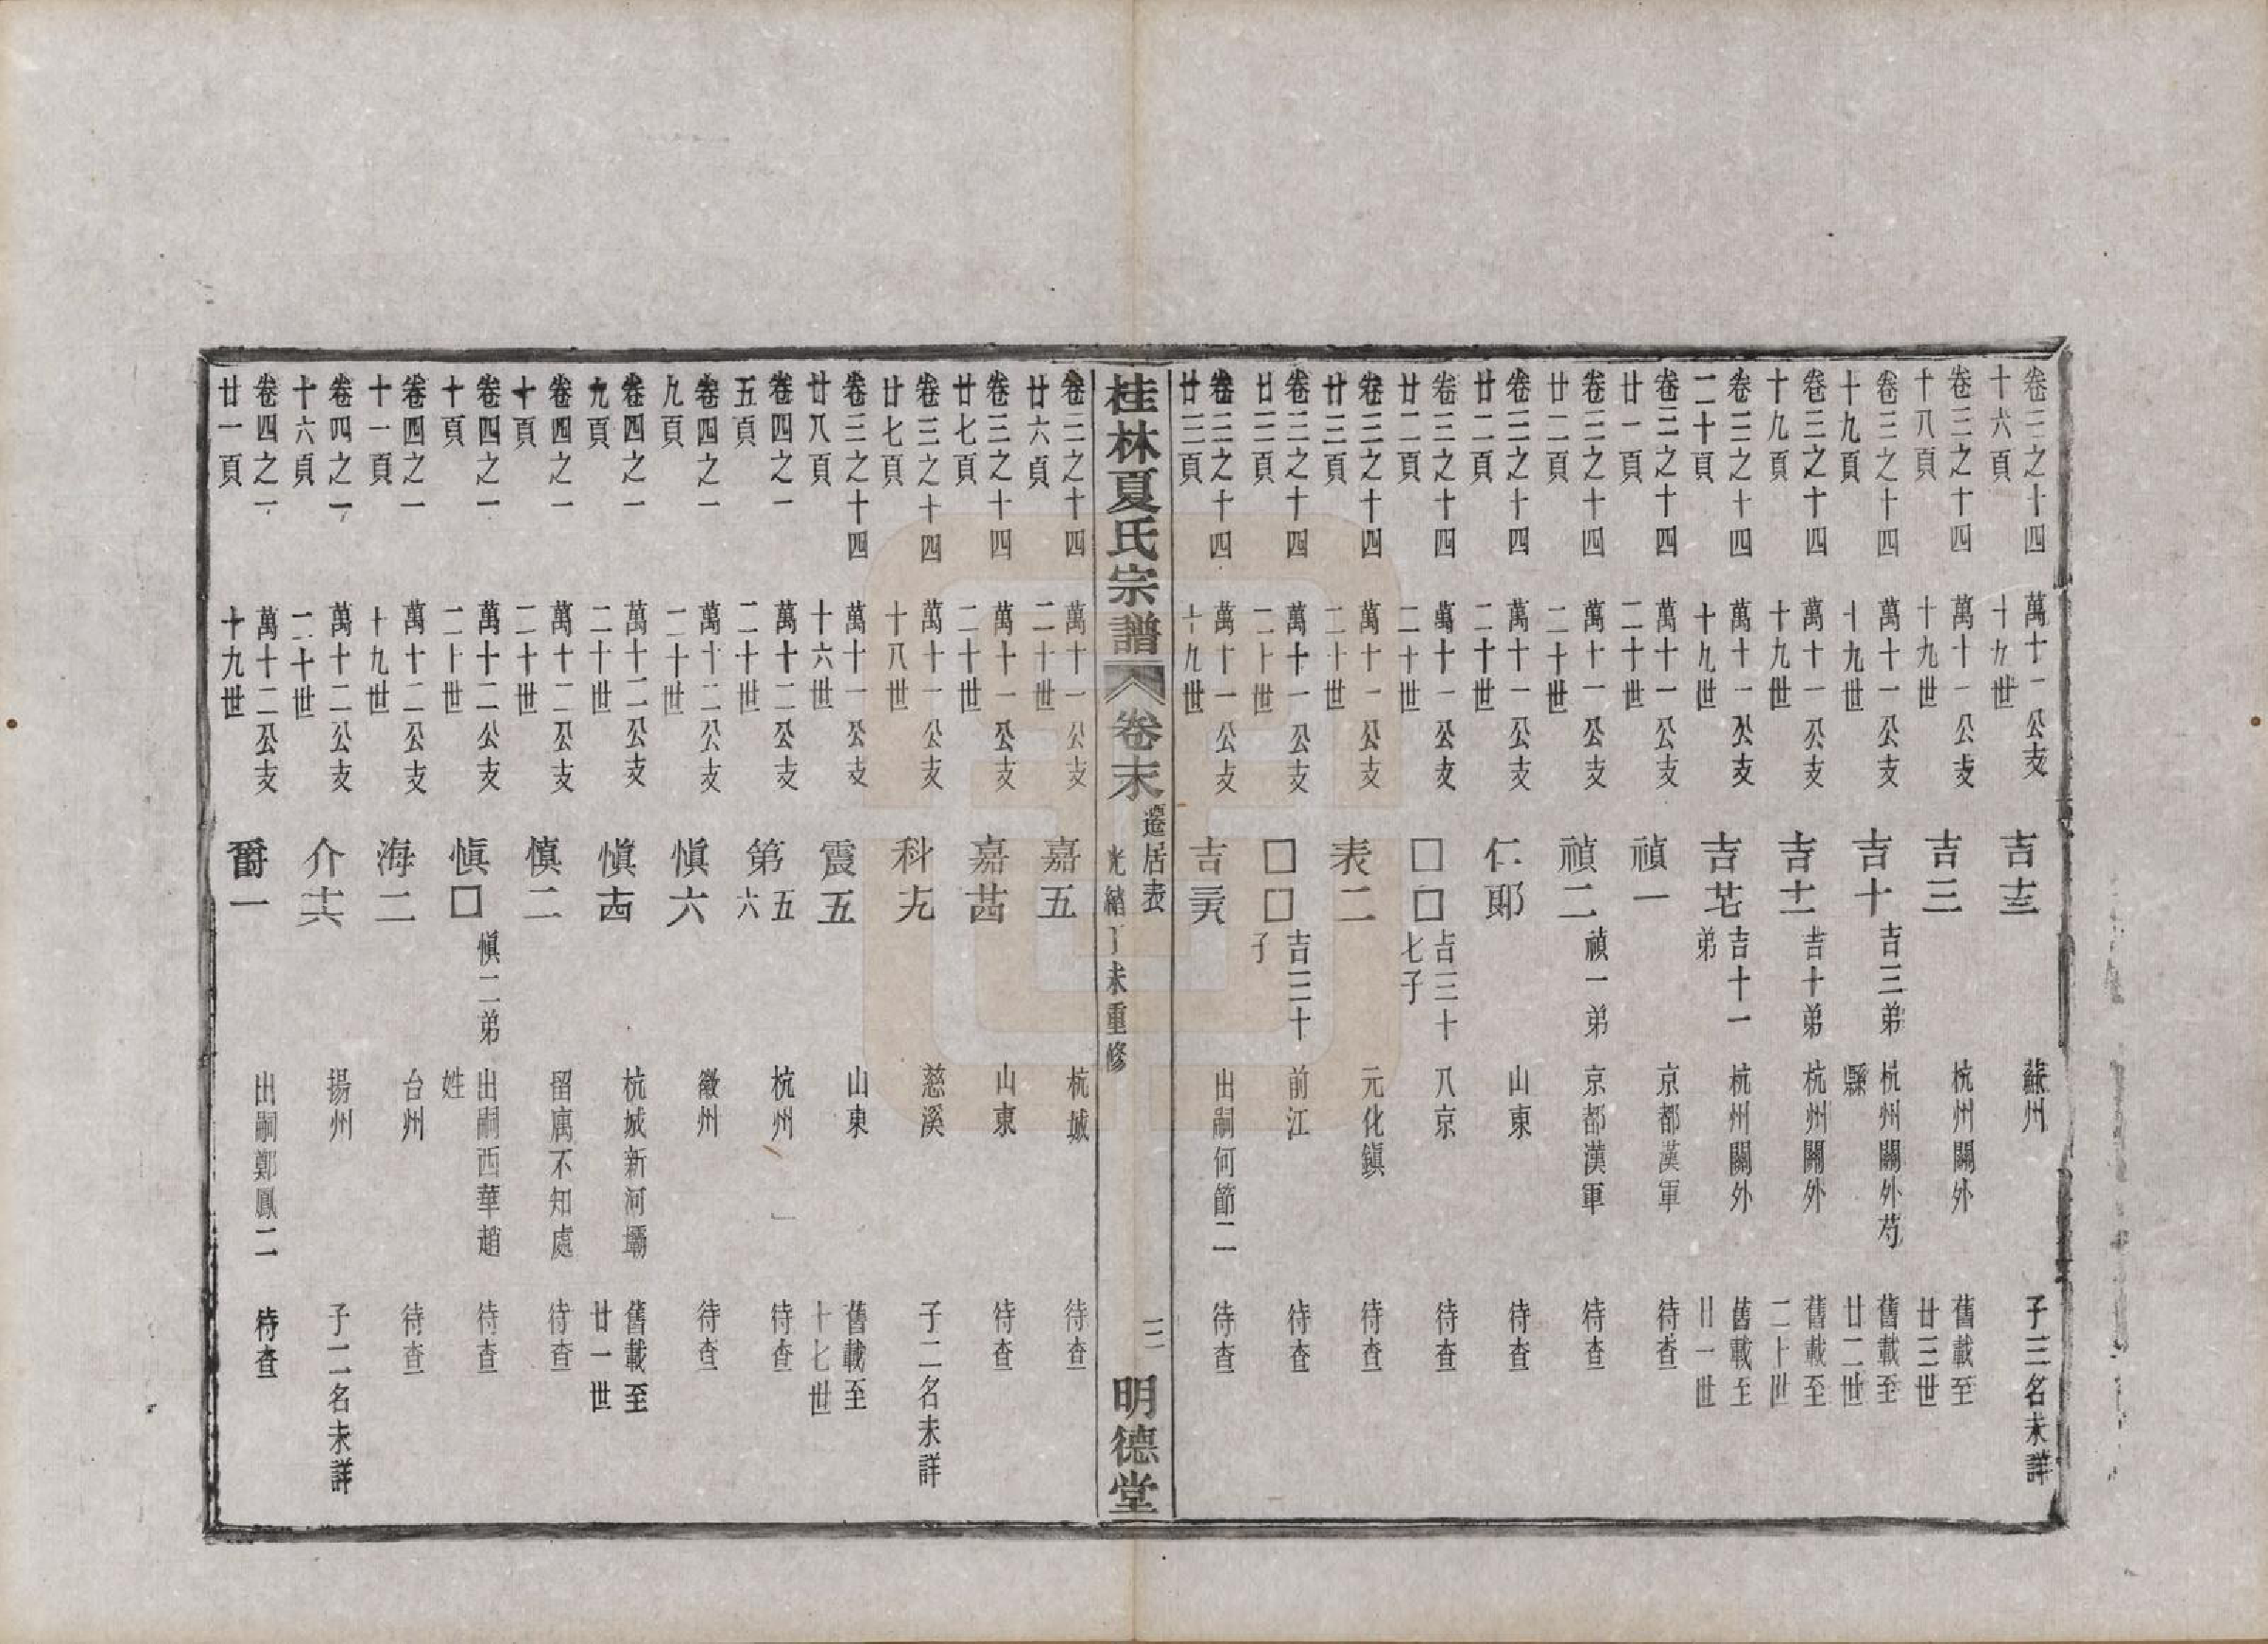 卷三之十四十六頁　萬十一公支十九世　吉三　蘇州　子三名未詳
卷三之十四十八頁　萬十一公支十九世　吉三　杭州關外　舊載至廿三世
卷三之十四十九頁　萬十一公支十九世　吉十　吉三弟　杭州關外芍縣　舊載至廿二世
卷三之十四十九頁　萬十一公支十九世　吉十一　吉十弟　杭州關外　舊載至二十世
卷三之十四二十頁　萬十一公支十九世　吉　吉十一弟　杭州關外　舊載至廿一世
卷三之十四廿一頁　萬十一公支二十世　禎一　京都漢軍　待查
卷三之十四廿二頁　萬十一公支二十世　禎二　禎一弟　京都漢軍　待查
卷三之十四廿二頁　萬十一公支二十世　仁郞　山東　待查
卷三之十四廿二頁　萬十一公支二十世　□□　吉三十七子　八京　待查
卷三之十四廿三頁　萬十一公支二十世　表二　元化鎭　待查
卷三之十四廿三頁　萬十一公支二十世　□□　吉三十子　前江　待查
卷三之十四廿三頁　萬十一公支十九世　吉　出嗣何節二　待查
桂林夏氏宗譜　卷末　遷居表　光緒丁未重修　三　明德堂
卷三之十四廿六頁　萬十一公支二十世　嘉五　杭城　待查
卷三之十四廿七頁　萬十一公支二十世　嘉　山東　待查
卷三之十四廿七頁　萬十一公支十八世　科　慈溪　子二名未詳
卷三之十四廿八頁　萬十一公支十六世　震五　山東　舊載至十七世
卷四之一五頁　萬十二公支二十世　第五六　杭州　待查
卷四之一九頁　萬十二公支二十世　愼六　徽州　待查
卷四之一九頁　萬十二公支二十世　愼　杭城新河壩　舊載至廿一世
卷四之一十頁　萬十二公支二十世　愼二　留寓不知處　待查
卷四之一十頁　萬十二公支二十世　愼□　愼二弟　出嗣西華趙姓　待查
卷四之一十一頁　萬十二公支十九世　海二　台州　待查
卷四之一十六頁　萬十二公支二十世　介　揚州　子二名未詳
卷四之一廿一頁　萬十二公支十九世　爵一　出嗣鄭鳳二　待查